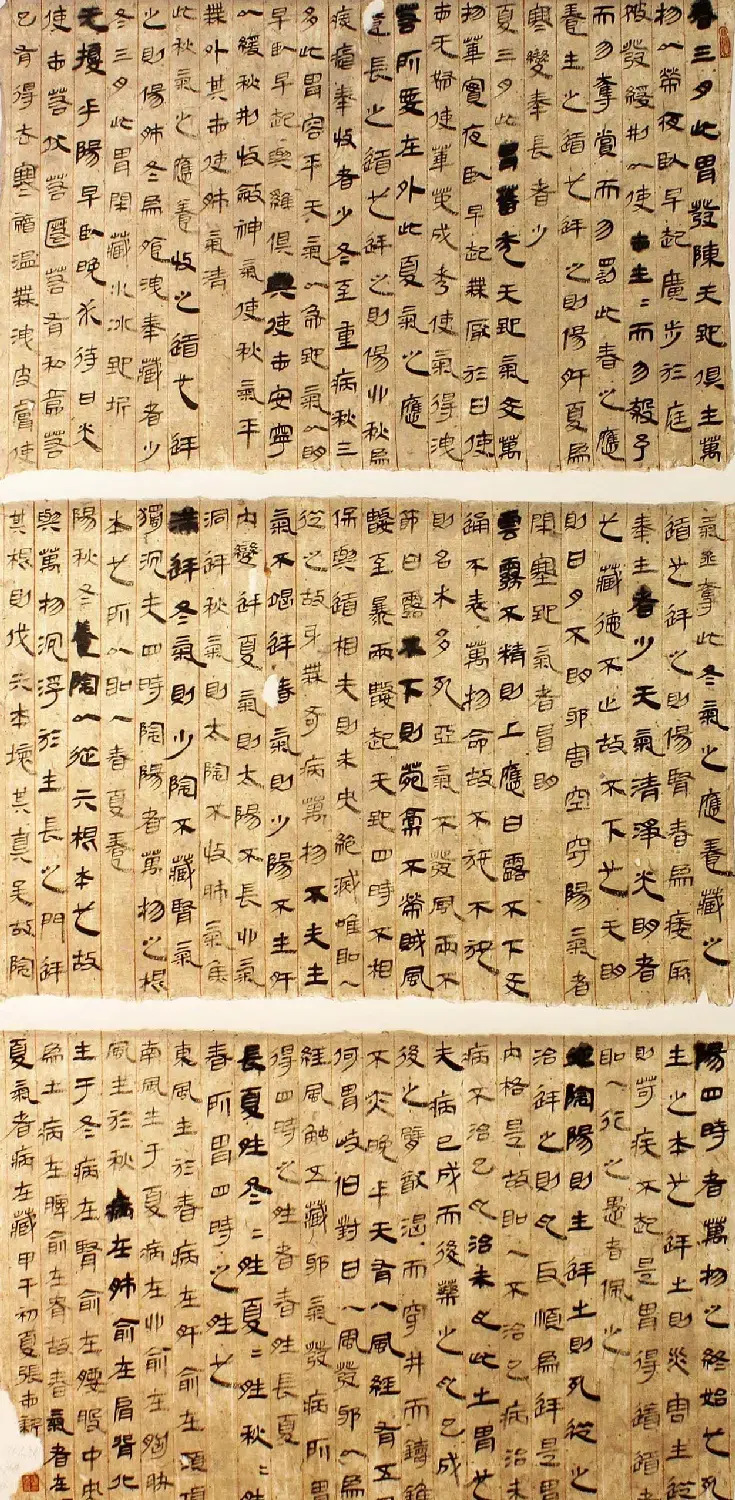 春三月此胃發陳天地俱生萬
物以榮夜臥早起廣步於庭
被發緩刑以使志生=而勿殺予
而勿奪賞而勿罰此春之應
養生之道也逆之則傷肝夏爲
寒變奉長者少
夏三月此胃蕃秀天地氣交萬
物華實夜臥早起無厭於日使
志无怒使華英成秀使氣得洩
若所愛在外此夏氣之應
養長之道也逆之則傷心秋爲
痎瘧奉收者少冬至重病秋三
月此胃容平天氣以急地氣以明
早臥早起與雞俱興使志安寧
以緩秋刑收斂神氣使秋氣平
無外其志使肺氣清
此秋氣之應養收之道也逆
之則傷肺冬爲飧洩奉藏者少
冬三月此胃閉藏水冰地坼
无擾乎陽早臥晚必待日光
使志若伏若匿若有私意若
已有得去寒就溫無洩皮膚使
氣亟奪此冬氣之應養藏之
道也逆之則傷腎春爲痿厥
奉生者少天氣清淨光明者
也藏德不止故不下也天明
則日月不明邪害空竅陽氣者
閉塞地氣者冒明
雲霧不精則上應白露不下交
通不表萬物命故不施不施
則名木多死惡氣不發風雨不
節白露不下則菀稾不榮賊風
數至暴雨數起天地四時不相
保與道相失則未央絕滅唯聖人
從之故身無奇病萬物不失生
氣不竭逆春氣則少陽不生肝
內變逆夏氣則太陽不長心氣
洞逆秋氣則太陰不收肺氣焦
滿逆冬氣則少陰不藏腎氣
獨沉夫四時陰陽者萬物之根
本也所以聖人春夏養
陽秋冬養陰以從其根本也故
與萬物沉浮於生長之門逆
其根則伐其本壞其真矣故陰
陽四時者萬物之終始也死
生之本也逆之則災害生從
則苛疾不起是胃得道道者
聖人行之愚者佩之
從陰陽則生逆之則死從之
治逆之則亂反順爲逆是胃
內格是故聖人不治已病治未
病不治已亂治未亂此之胃也
夫病已成而後藥之亂已成
後治之譬猶渴而穿井而鑄錐
不亦晚乎天有八風經有五
何胃岐伯對曰八風發邪以爲
經風觸五藏邪氣發病所胃
得四時之勝者春勝長夏
長夏勝冬=勝夏=勝秋=勝
春所胃四時之勝也
東風生於春病在肝俞在頸項
南風生于夏病在心俞在胸脇
風生於秋病在肺俞在肩背北
生于冬病在腎俞在腰股中央
爲土病在脾俞在脊故春氣者在
夏氣者病在藏甲午初夏張